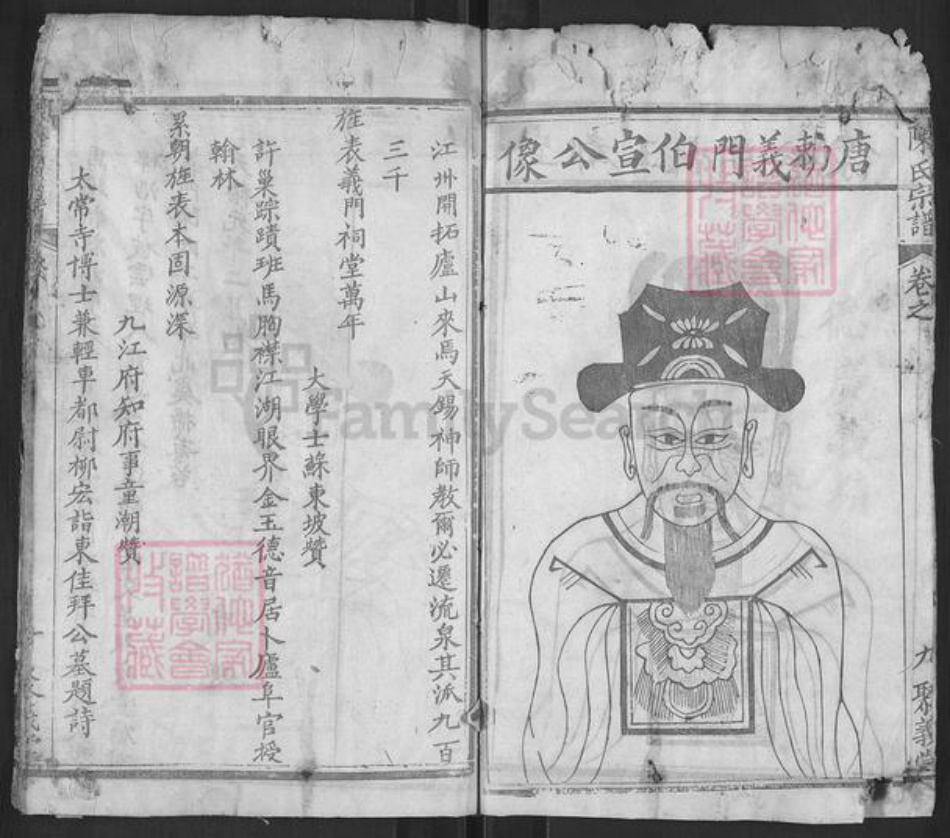 唐勅義門伯宣公像
陳氏宗譜
卷之
九
聚義堂
江州開拓廬山來焉天錫神師教爾必遷流泉其派九百
三千
旌表義門祠堂萬年
大學士蘇東坡贊
許巢踪蹟班馬胸襟江湖眼界金玉德音居卜廬阜官授
翰林
累朝旌表本固源深
九江府知府事童潮贊
太常寺博士兼輕車都尉柳宏詣東佳拜公墓題詩
FamilySearch